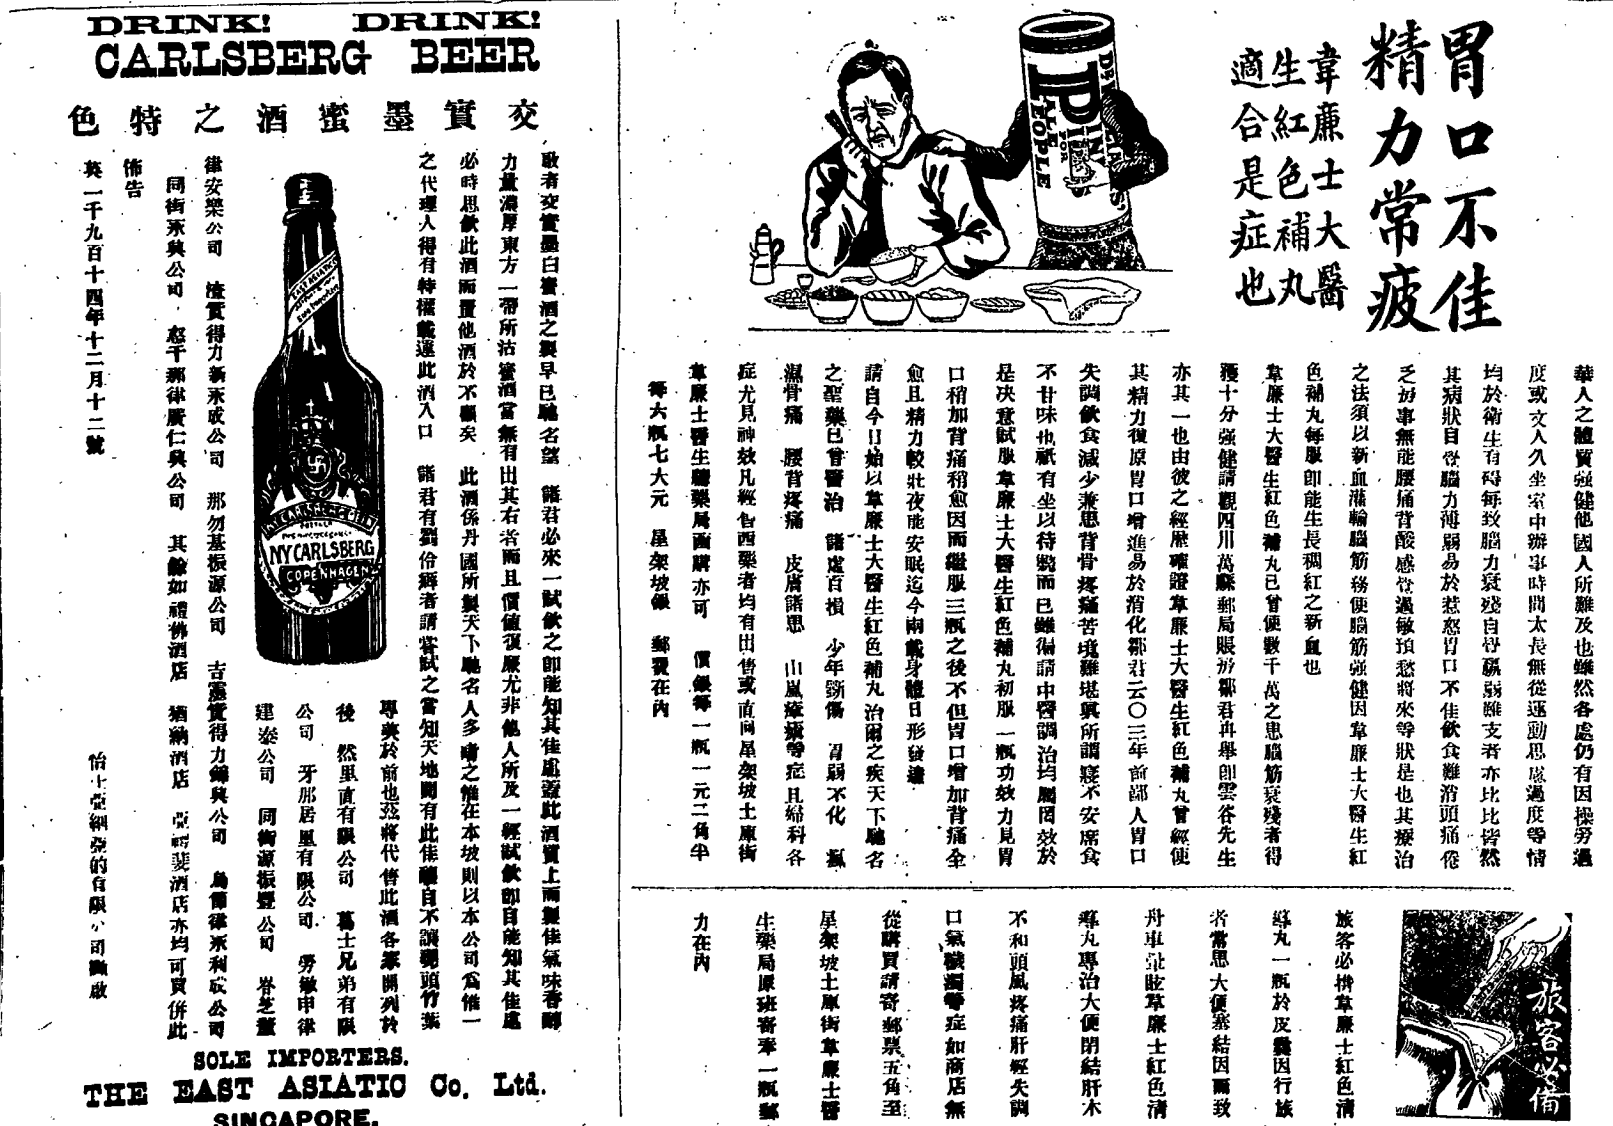 DRINK! DRINK!
CARLSBERG BEER
交實墨蜜酒之特色
敢者交實墨白蜜酒之製早已馳名望 諸君必來一試飲之即能知其佳處蓋此酒質上而製佳氣味香醇
力量濃厚東方一帶所沽蜜酒當無有出其右者而且價値復廉尤非他人所及一經試飲即自能知其佳處
必時思飲此酒而置他酒於不顧矣 此酒係丹國所製天下馳名人多嗜之惟在本坡則以本公司爲惟一
之代理人得有特權載運此酒入口 諸君有劉伶癖者請嘗試之當知天地間有此佳釀自不讓 頭竹葉
專美於前也茲將代售此酒各家開列於
後 然里直有限公司 葛士兄弟有限
公司 牙那居里有限公司 勞敏申律
建泰公司 同街源振豐公司 春芝
律安樂公司 渣實得力新永成公司 那勿基振源公司 吉靈實得力錦興公司 烏節律永利成公司
同街永興公司 怒干那律廣仁興公司 其餘如禮佛酒店 猶納酒店 亞 斐酒店亦均可買併此
佈告
英一千九百十四年十二月十二號
怡士亞細亞的有限公司 啟
EAST ASIATIC
NY CARLSBERG
NY CARLSBERG
COPENHAGEN
SOLE IMPORTERS.
THE EAST ASIATIC Co. Ltd.
SINGAPORE.
胃口不佳
精力常疲
韋廉士大醫
生紅色補丸
適合是症也
DR. WILLIAMS'
PINK PILLS
FOR
PALE PEOPLE
華人之體質强健他國人所難及也雖然各處仍有因操勞過
度或文人久坐室中辦事時間太長無從運動思慮過度等情
均於衛生有碍每致腦力衰殘自覺羸弱難支者亦比比皆然
其病狀自覺腦力薄弱易於惹怒胃口不佳飲食難消頭痛倦
乏毎事無能腰痛背酸感覺過敏預愁將來等狀是也其療治
之法須以新血灌輸腦筋務使腦筋强健因韋廉士大醫生紅
色補丸每服即能生長稠紅之新血也
韋廉士大醫生紅色補丸已曾使數千萬之患腦筋衰殘者得
獲十分强健請觀四川萬縣郵局賬房鄒君冉舉即雲谷先生
亦其一也由彼之經歷確證韋廉士大醫生紅色補丸曾經使
其精力復原胃口增進易於消化鄒君云〇三年前鄙人胃口
失調飲食減少兼思背骨疼痛苦境難堪與所謂寢不安席食
不甘味也祇有坐以待斃而已雖得請中醫調治均屬罔效於
是决意試服韋廉士大醫生紅色補丸初服一瓶功效力見胃
口稍加背痛稍愈因而繼服三瓶之後不但胃口增加背痛全
愈且精力較壯夜能安眠迄今兩載身體日形發達
請自今日始以韋廉士大醫生紅色補丸治爾之疾天下馳名
之聖藥已曾醫治 諸虛百損 少年斲傷 胃弱不化 瘋
濕骨痛 腰背疼痛 皮膚諸患 山嵐瘴瘧等症且婦科各
症尤見神效凡經售西藥者均有出售或直向星架坡土庫街
韋廉士醫生總藥局函購亦可 價銀每一瓶一元二角半
每六瓶七大元 星架坡銀 郵費在內
旅客必備
旅客必揹韋廉士紅色淸
導丸一瓶於皮 因行旅
者常思大便塞結因而致
舟車暈眩韋廉士紅色淸
導丸專治大便閉結肝木
不和頭風疼痛肝經失調
口氣穢濁等症如商店無
從購買請寄郵票五角至
星架坡土庫街韋廉士醫
生藥局原班寄奉一瓶郵
力在內